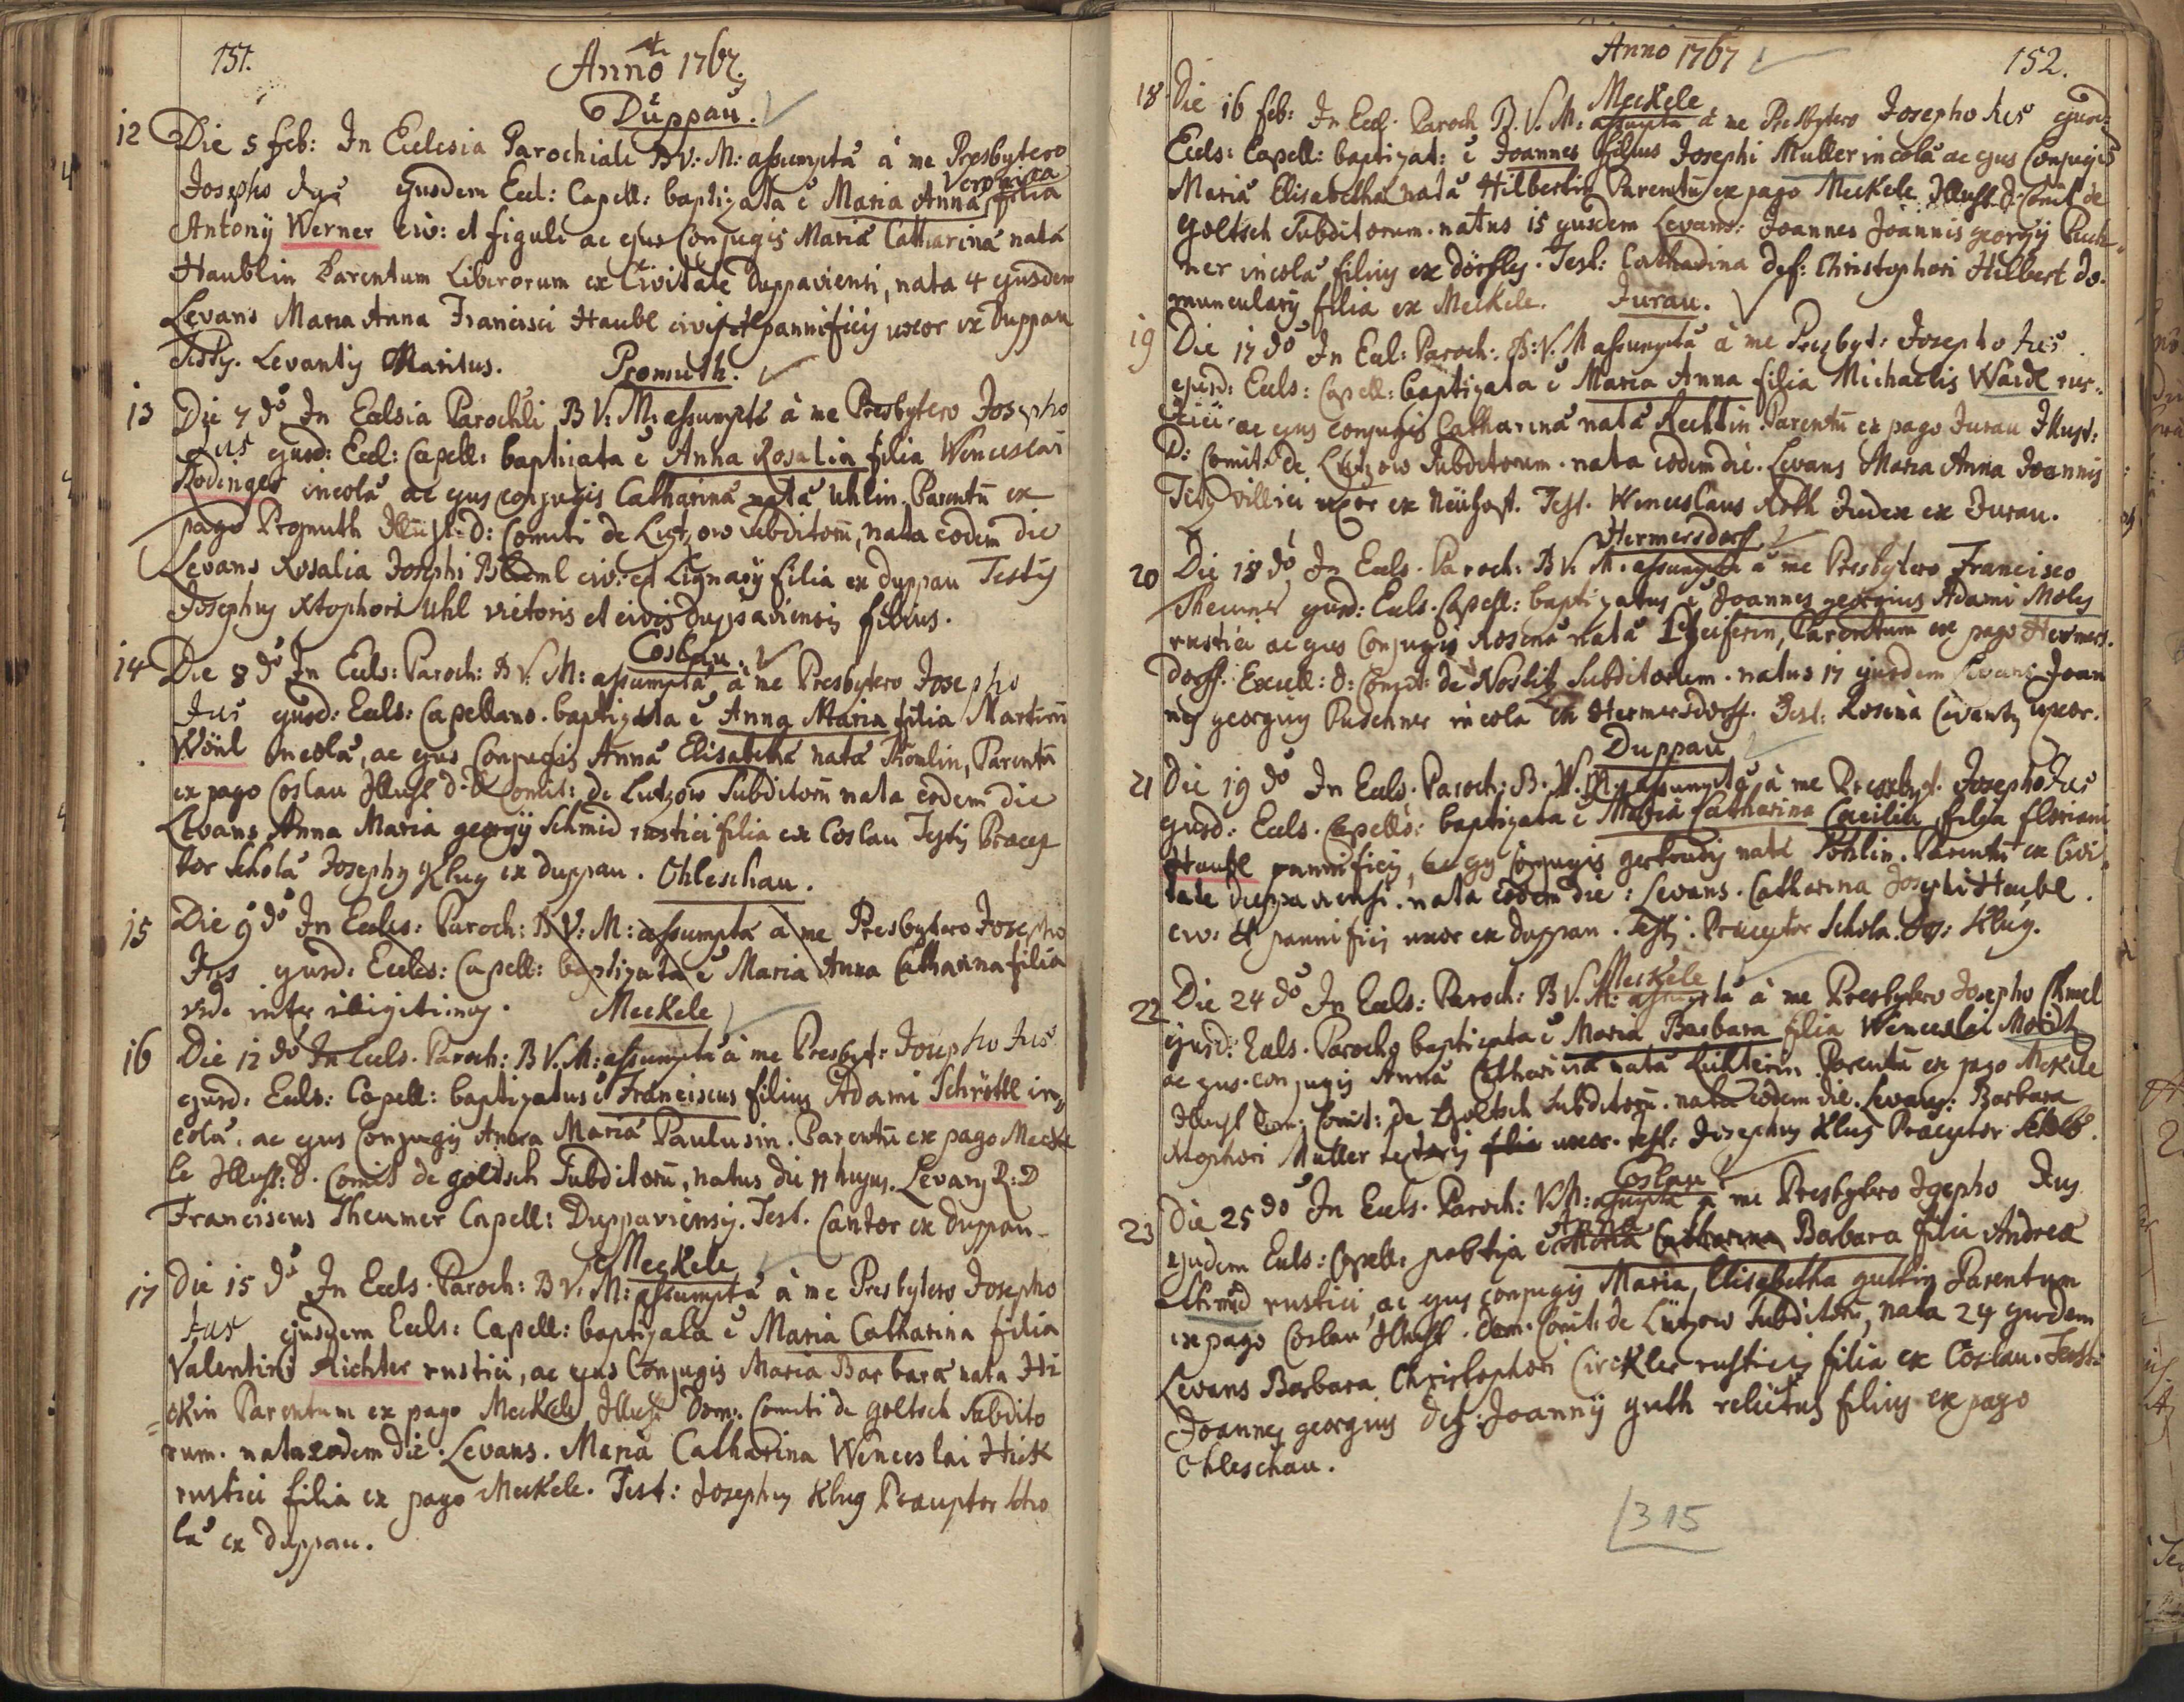 151.
Anno 1767.
Duppau.
12 Die 5 feb: In Ecclesia Parochiali B V: M: assumptâ à me Presbytero
Josepho Jus ejusdem Eccl: Capell: baptizata ê Maria Anna Veronica filia
Antonÿ Werner civ: et figuli ac ejus Conjugis Mariâ Catharinâ natâ
Haublin Parentum Liberorum ex Civitate Duppaviensi, nata 4 ejusdem
Levans Maria Anna Francisci Haubl civis et pannificis uxor ex Duppau
Testis. Levantis Maritus.
Promuth.
13 Die 7 do In Eclsia Parochli B V: M: assumptâ à me Presbytero Josepho
Jus ejusd: Eccl: Capell: baptizata ê Anna Rosalia filia Wenceslai
Rodinger incolâ ac ejus conjugis Catharinâ natâ Uhlin. Parentũ ex
pago Promuth Illust. D: Comiti de Lutzow Subditorũ, nata eodem die
Levans Rosalia Josephi civ: et Lignarÿ filia ex duppau Testis
Josephus Xtophori Uhl vietoris et civis duppaviensis filius.
Coslau.
14 Die 8 do In Ecels: Paroch: B V: M: assumptâ à me Presbytero Josepho
Jus ejusd: Ecels: Capellano. baptizata ê Anna Maria filia Martini
Wönl incolâ, ac ejus Conjugis Annâ Elisabethâ natâ Parentũ
ex pago Coslau Illust D. D Comit: de Lutzow Subditorũ nata eodem die
Levans Anna Maria georgÿ Schmid rustici filia ex Coslau Testis Præcep
tor Scholâ Josephus Klug ex duppau.
Ohleschau.
15 Die 9 do In Ecels: Paroch: B V: M: assumptâ à me Presbytero Josepho
Jus ejusd: Ecels: Capell: baptizata ê Maria Anna Catharina filia
vide inter illigitimos.
Meckele
16 Die 12 do In Ecels. Paroch: B V. M: assumptâ à me Presbyt: Josepho Jus
ejusd: Ecels: Capell: baptizatus ê Franciscus filius Adami Schröttl in,,
colâ. ac ejus Conjugis Anna Mariâ Paulusin. Parentũ ex pago Mecke
le Illust: D. Comit de goltsch Subditorũ, natus die 11 hujus. Levans R: D
Franciscus Theumer Capell: Duppaviensis. Test. Cantor ex duppau.
Meckele
17 Die 15 do In Ecels. Paroch: B V. M: assumptâ à me Presbytero Josepho
Jus ejusdem Ecels: Capell: baptizata ê Maria Catharina filia
Valentini Richter rustici, ac ejus Conjugis Maria Barbarâ nata Hi
ckin Parentum ex pago Meckele Illust Dom: Comiti de goltsch Subdito
rum. nata eodem die. Levans. Maria Catharina Wenceslai Hick
rustici filia ex pago Meckele. Test: Josephus Klug Præceptor scho
lâ ex duppau.
Anno 1767
152.
Meckele
18 Die 16 feb: In Eccl. Paroch B. V. M: assumptâ à me Presbytero Josepho Jus ejusd:
Ecels: Capell: baptizat: ê Joannes filius Josephi Muller incolâ ac ejus Conjugis
Mariâ Elisabethâ natâ Hilbertin Parentũ ex pago Meckele Illust. D. Comit de
goltsch Subditorum. natus 15 ejusdem Levans: Joannes Joannis georgÿ Puch-
ner incolâ filius ex dörfles. Test: Catharina def: Christophori Hilbert do-
muncularÿ filia ex Meckele.
Jurau.
19 Die 17 do In Ecel: Paroch: B: V. M assumptâ à me Presbyt: Josepho Jus
ejusd: Ecels: Capell: baptizata ê Maria Anna filia Michaelis Waidl rus-
tici ac ejus conjugis Catharinâ natâ Rechtin Parentũ ex pago Jurau Illust:
D: Comit: de Lutzow Subditorum. nata eodem die. Levans Maria Anna Joannis
villici uxor ex Neühoff. Test. Wenceslaus Roth Judex ex Jurau.
Hermersdorf.
20 Die 18 do In Ecels. Paroch: B V: M. assumptâ à me Presbytero Francisco
Theumer ejusd: Ecels. Capell: baptizatus ê Joannes georgius Adami Moles
rustici ac ejus Conjugis Rosinâ natâ Parentum ex pago Hermers-
dorff. Excell: D: Comit: de Nostitz Subditorum. natus 17 ejusdem Levans Joan
nes georgius Puschner incola ex Hermersdorff. Test: Rosina Levantis uxor.
Duppau
21 Die 19 do In Ecels. Paroch: B. V. M. assumptâ à me Presbyt. Josepho Jus
ejusd: Ecels. Capello: baptizata ê Maria Catharina Cæcilia filia floriani
Haubl pannificis, ac ejus conjugis gertrudis natâ Parentũ ex Civi,,
tate duppaviensi. nata eodem die: Levans. Catharina Josephi Haubl.
civ: et pannificis uxor ex duppau. Testis. Præceptor Schola. Jos: Klug.
Meckele
22 Die 24 do In Ecels: Paroch: B V. M: assumptâ à me Presbytero Josepho Chmel
ejusd: Ecels. Parocho baptizata ê Maria Barbara filia Wenceslai
ac ejus. conjugis Annâ Catharinâ natâ Parentũ ex pago Mekele
Illust Dom: Comit: de Goltsch Subditorũ. nata eodem die. Levans: Barbara
Xtophori Muller filia uxor. test: Josephus Klug Præceptor Scholâ.
Coslau
23 Die 25 do In Ecels. Paroch: V. M: assumptâ à me Presbytero Josepho Jus
ejusdem Ecels: Capell: ê Maria Catharina Anna Barbara filia Andreæ
Schmid rustici, ac ejus conjugis Maria, Elisabetha guttin Parentum
ex pago Coslau Illust. Dom. Comit: de Lützow Subditorũ, nata 24 ejusdem
Levans Barbara Christophori Cirkler rustici filia ex Coslau. Testis
Joannes georgius def: Joannÿ guth relictus filius ex pago
Ohleschau.
315